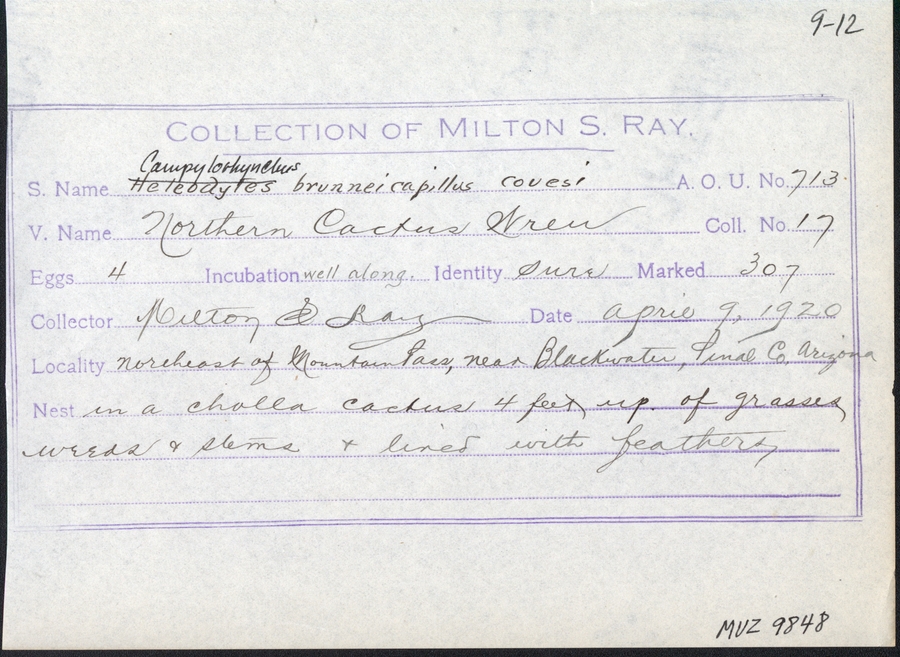 9-12
COLLECTION OF MILTON S. RAY.
Campylorhynchus
S. Name Heleodytes brunneicapillus couesi A. O. U. No. 713.
V. Name Northern Cactus Wren Coll. No. 17
Eggs 4 Incubation well along. Identity Sure Marked 307
Collector Milton S Ray Date April 9, 1920
Locality northeast of Mountain Pass, near Blackwater, Pinal Co, Arizona
Nest in a cholla cactus 4 feet up. of grasses,
weeds & stems & lined with feathers,
MVZ 9848